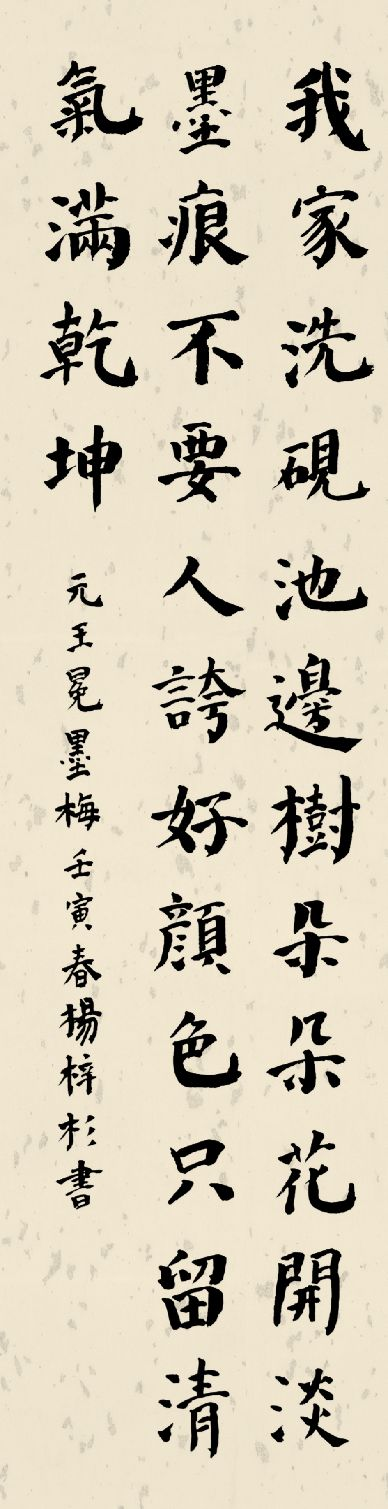 我家洗硯池邊樹朵朵花開淡
墨痕不要人誇好顏色只留清
氣滿乾坤
元王冕墨梅壬寅春楊梓杉書